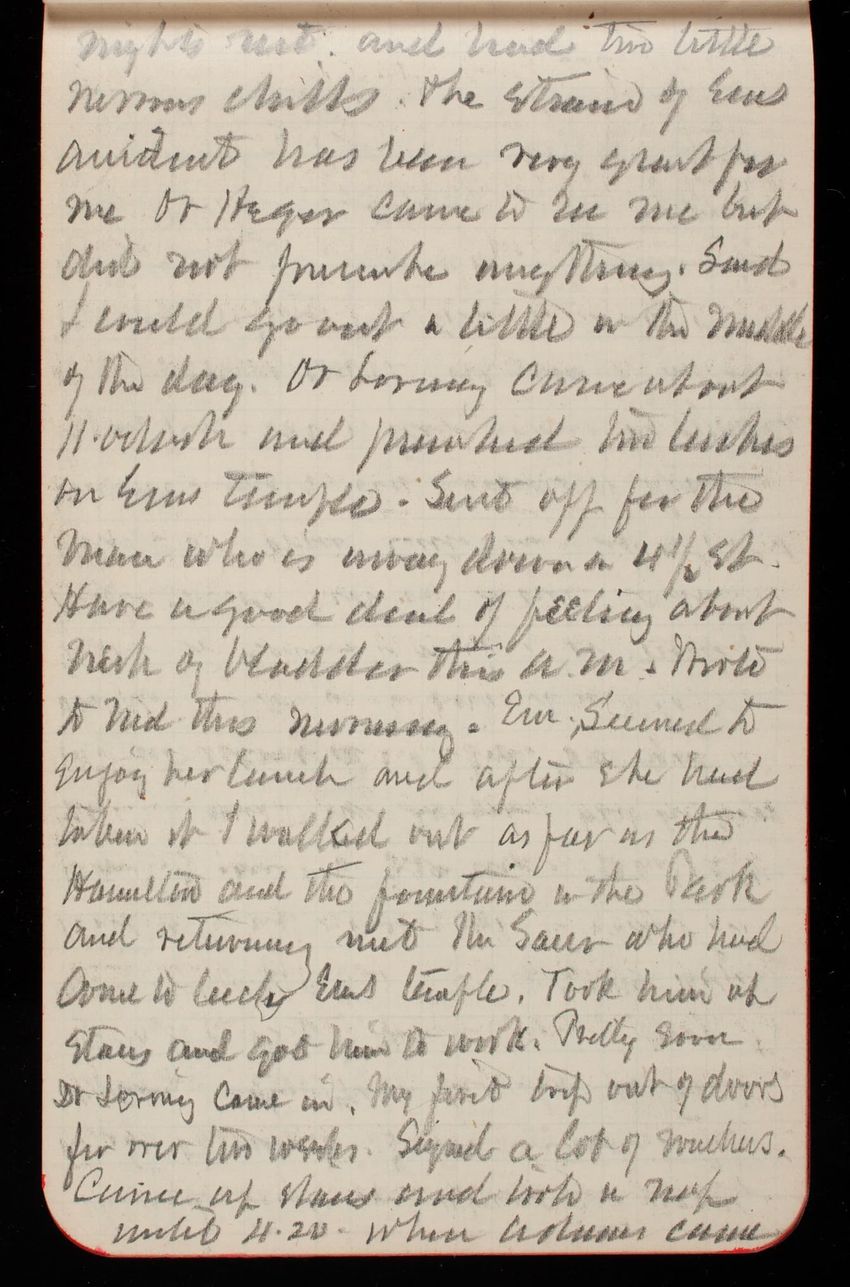 nights rest. and had two little
nervous chills. The strain of Ems
accident has been very great for
me Dr Heger came to see me but
did not prescribe anything. Said
I could go out a little in the middle
of the day. Dr Loring came about
11 oclock and prescribed two leeches
on Ems temple. Sent off for the
man who is away down on 4 1/2 St.
Have a good deal of feeling about
neck of bladder this a.m. Wrote
to Ned this morning. Em. Seemed to
enjoy her lunch and after she had
taken it I walked out as far as the
Hamilton and the fountain in the Park
and returning met Mr who had
come to leech Ems temple. Took him up
stairs and got him to work. Pretty soon
Dr Loring came in. My first trip out of doors
for over two weeks. Signed a lot of vouchers.
Came up stairs and took a nap
until 4.20. when Adams came